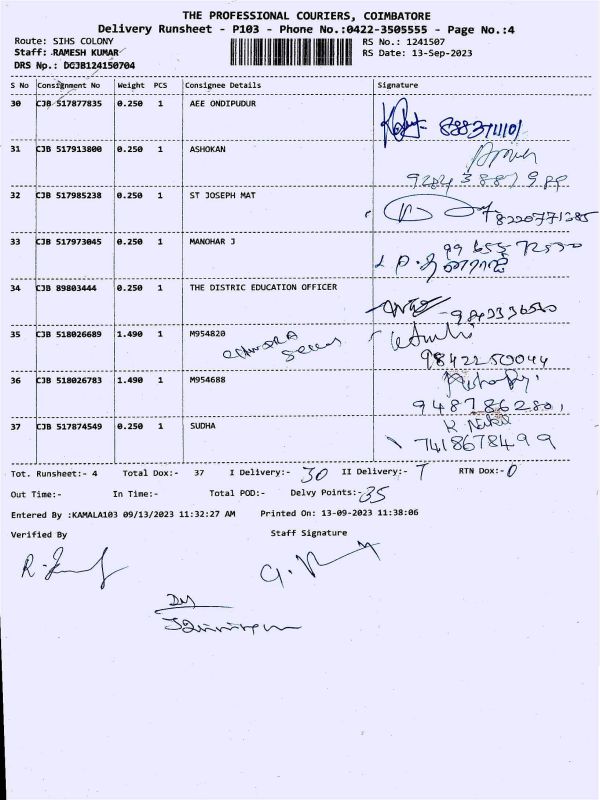 THE PROFESSIONAL COURIERS, COIMBATORE
Delivery Runsheet - P103 - Phone No.:0422-3505555 - Page No.:4
Route: SIHS COLONY
RS No.: 1241507
Staff: RAMESH KUMAR
RS Date: 13-Sep-2023
DRS Np.: DCJB124150704
S No Consignment No Weight PCS Consignee Details Signature
30 CJB 517877835 0.250 1 AEE ONDIPUDUR
31 CJB 517913800 0.250 1 ASHOKAN
32 CJB 517985238 0.250 1 ST JOSEPH MAT
8220771285
33 CJB 517973045 0.250 1 MANOHAR J
34 CJB 89803444 0.250 1 THE DISTRIC EDUCATION OFFICER
35 CJB 518026689 1.490 1 M954820
9842250044
36 CJB 518026783 1.490 1 M954688
948786280
37 CJB 517874549 0.250 1 SUDHA
7418678499
Tot. Runsheet:- 4 Total Dox:- 37 I Delivery:- 30 II Delivery:- 7 RTN Dox:- 0
Out Time:- In Time:- Total POD:- Delvy Points:- 35
Entered By :KAMALA103 09/13/2023 11:32:27 AM Printed On: 13-09-2023 11:38:06
Verified By Staff Signature